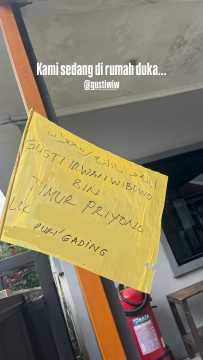 Kami sedang di rumah duka...
@gustiwiw
GUSTI IRWAN WIBOWO
BIN
TIMUR PRIYONO
PURI GADING